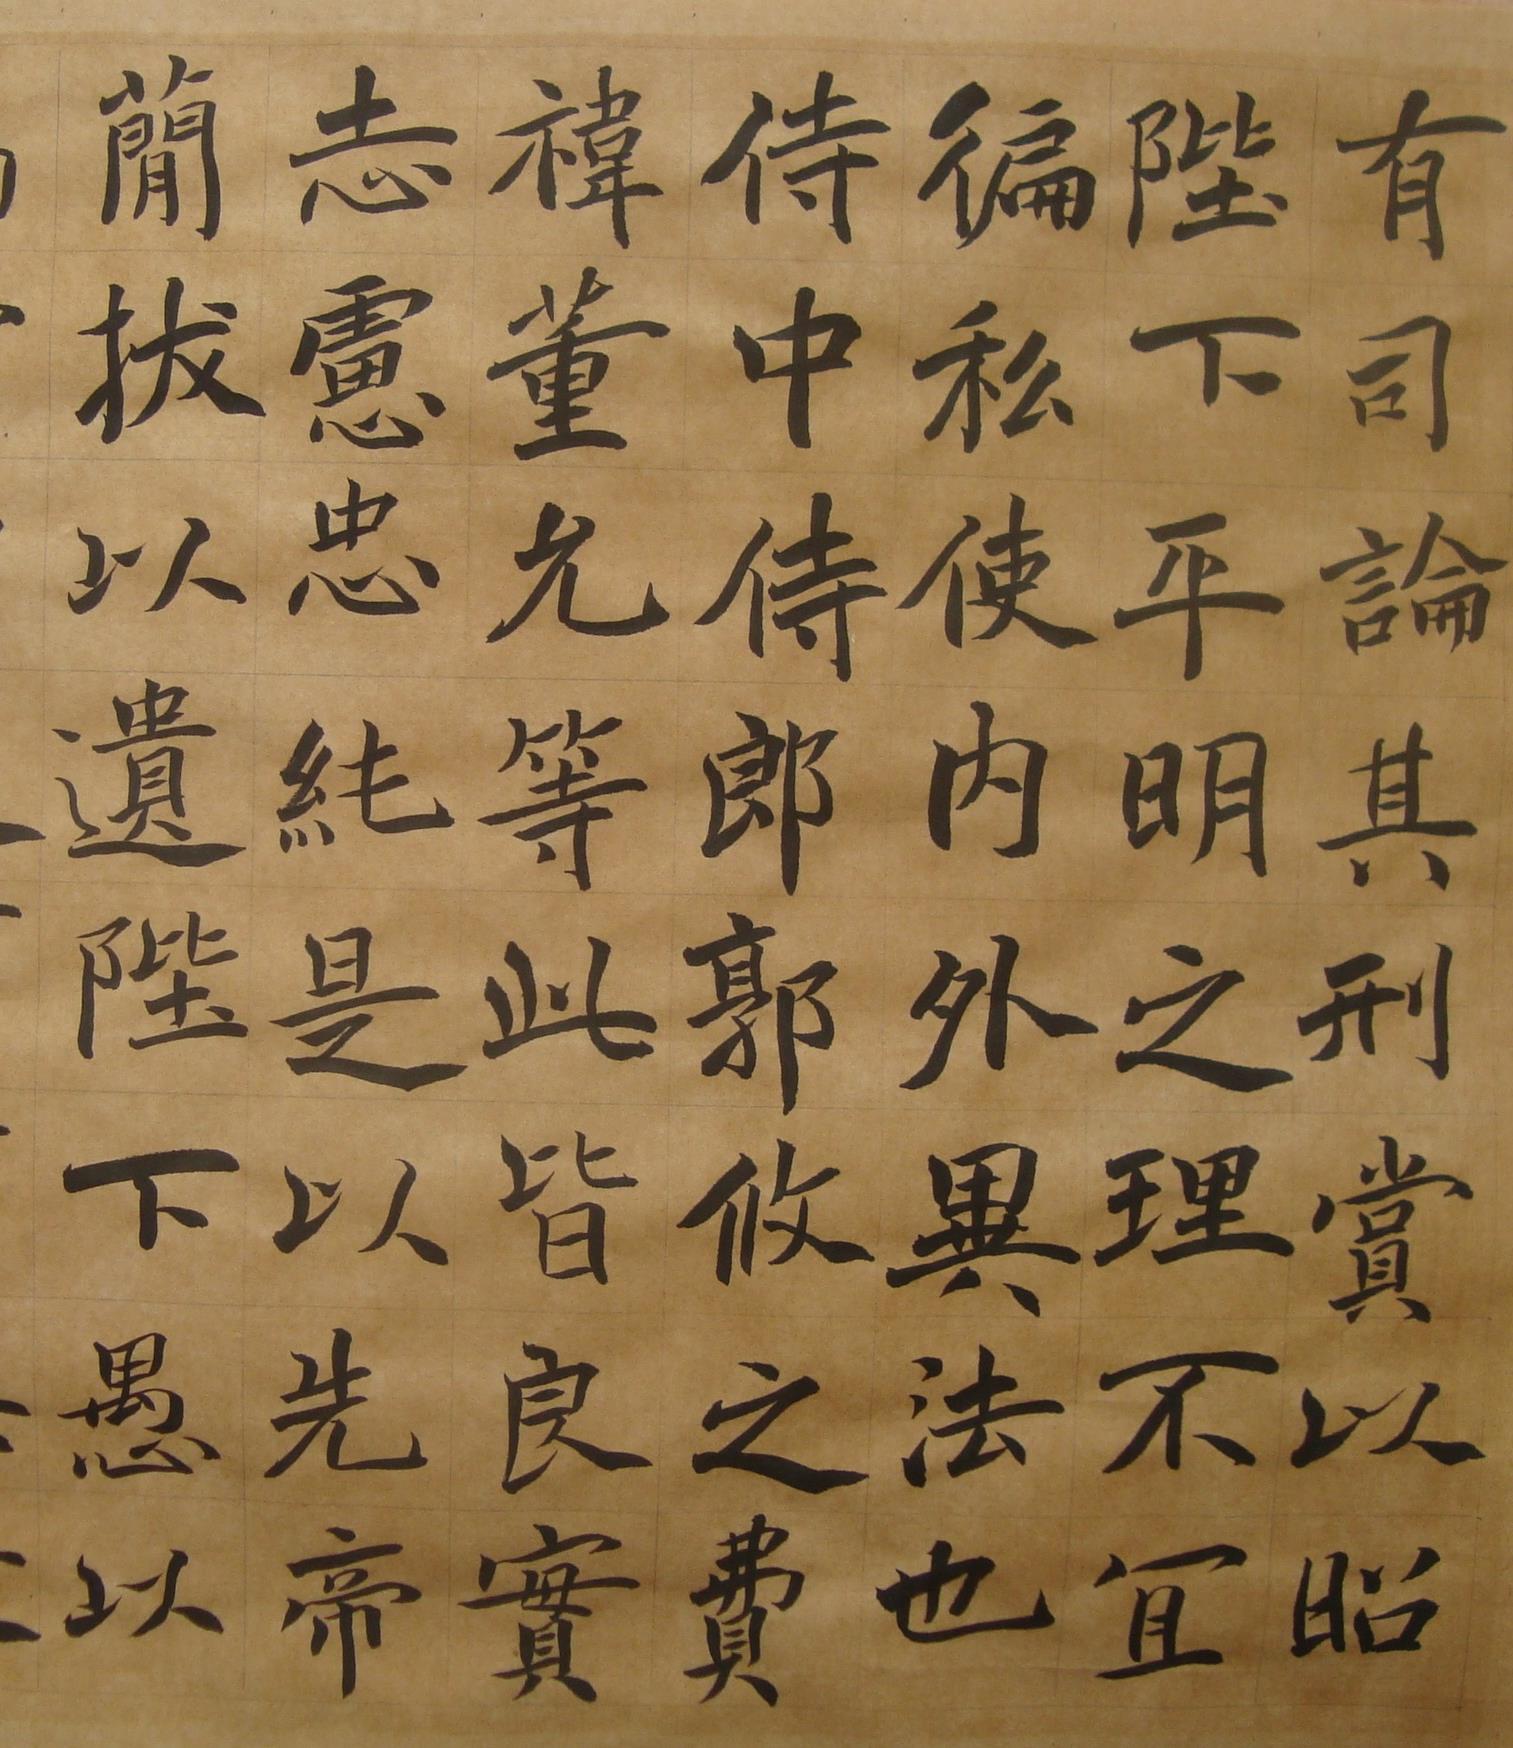 有司論其刑賞以昭
陛下平明之理不宜
徧私使内外異法也
侍中侍郎郭攸之費
禕董允等此皆良實
志慮忠純是以先帝
簡拔以遺陛下愚以